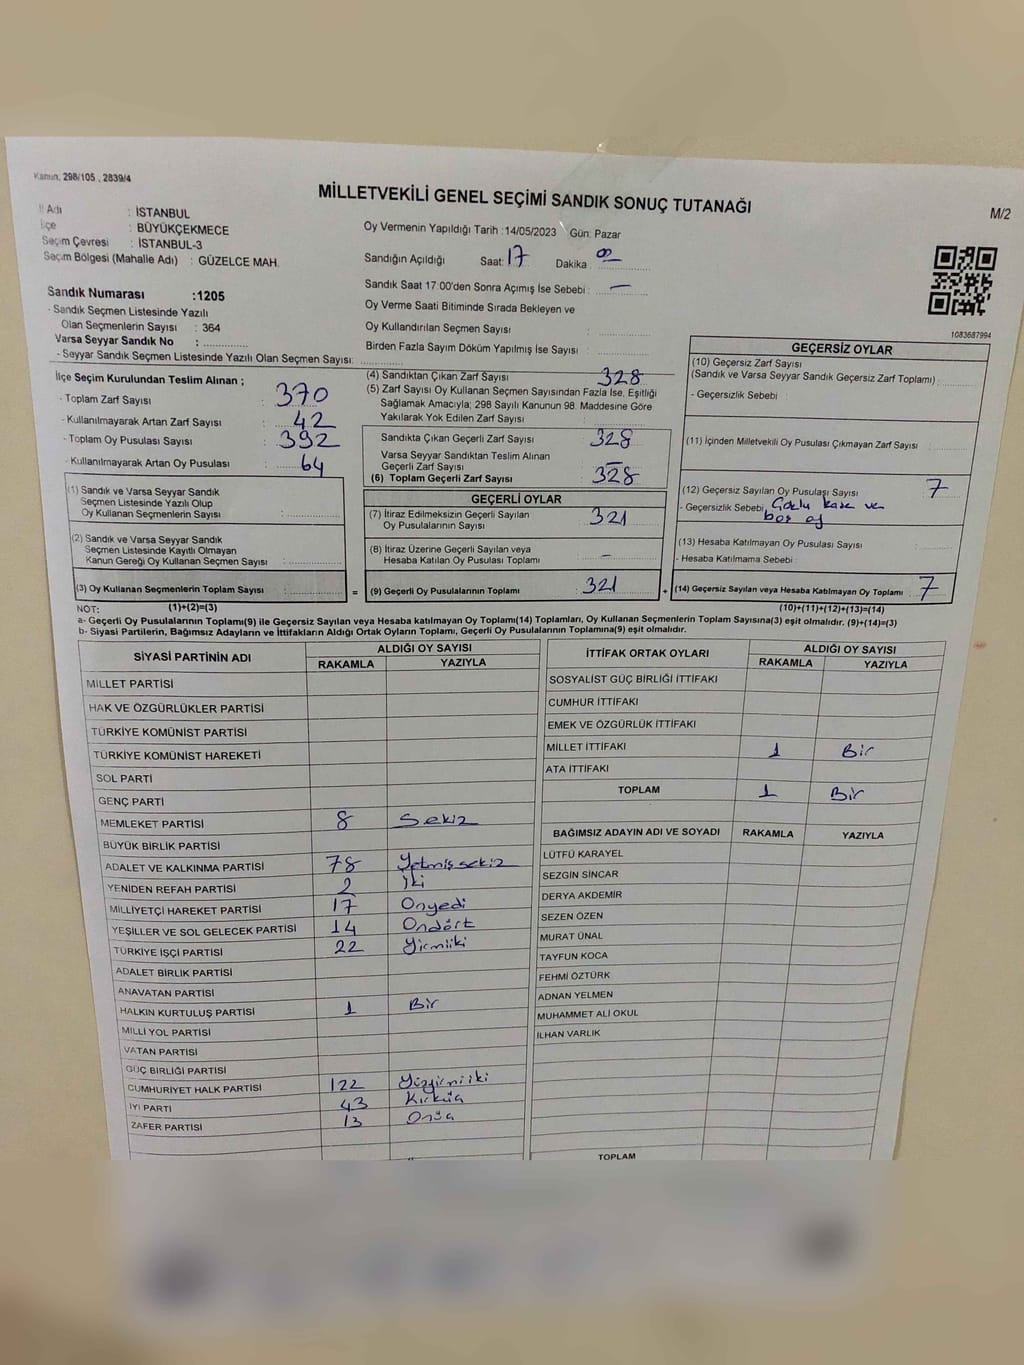 Kanun, 298/105 , 2839/4
MİLLETVEKİLİ GENEL SEÇİMİ SANDIK SONUÇ TUTANAĞI
M/2
İl Adı : İSTANBUL
İlçe : BÜYÜKÇEKMECE
Seçim Çevresi : İSTANBUL-3
Seçim Bölgesi (Mahalle Adı) : GÜZELCE MAH.
Oy Vermenin Yapıldığı Tarih :14/05/2023 Gün: Pazar
Sandığın Açıldığı Saat: 17 Dakika : 00
Sandık Saat 17:00'den Sonra Açımış İse Sebebi : —
Oy Verme Saati Bitiminde Sırada Bekleyen ve
Oy Kullandırılan Seçmen Sayısı :
Birden Fazla Sayım Döküm Yapılmış İse Sayısı :
Sandık Numarası :1205
- Sandık Seçmen Listesinde Yazılı
Olan Seçmenlerin Sayısı : 364
Varsa Seyyar Sandık No :
- Seyyar Sandık Seçmen Listesinde Yazılı Olan Seçmen Sayısı:
1083687994
İlçe Seçim Kurulundan Teslim Alınan ;
- Toplam Zarf Sayısı : 370
- Kullanılmayarak Artan Zarf Sayısı : 42
- Toplam Oy Pusulası Sayısı : 392
- Kullanılmayarak Artan Oy Pusulası : 64
(1) Sandık ve Varsa Seyyar Sandık
Seçmen Listesinde Yazılı Olup
Oy Kullanan Seçmenlerin Sayısı :
(2) Sandık ve Varsa Seyyar Sandık
Seçmen Listesinde Kayıtlı Olmayan
Kanun Gereği Oy Kullanan Seçmen Sayısı :
(3) Oy Kullanan Seçmenlerin Toplam Sayısı :
(1)+(2)=(3)
(4) Sandıktan Çıkan Zarf Sayısı : 328
(5) Zarf Sayısı Oy Kullanan Seçmen Sayısından Fazla İse, Eşitliği
Sağlamak Amacıyla; 298 Sayılı Kanunun 98. Maddesine Göre
Yakılarak Yok Edilen Zarf Sayısı :
Sandıkta Çıkan Geçerli Zarf Sayısı : 328
Varsa Seyyar Sandıktan Teslim Alınan
Geçerli Zarf Sayısı : —
(6) Toplam Geçerli Zarf Sayısı : 328
GEÇERLİ OYLAR
(7) İtiraz Edilmeksizin Geçerli Sayılan
Oy Pusulalarının Sayısı : 321
(8) İtiraz Üzerine Geçerli Sayılan veya
Hesaba Katılan Oy Pusulası Toplamı : —
= (9) Geçerli Oy Pusulalarının Toplamı : 321 +
GEÇERSİZ OYLAR
(10) Geçersiz Zarf Sayısı
(Sandık ve Varsa Seyyar Sandık Geçersiz Zarf Toplamı) :
- Geçersizlik Sebebi :
(11) İçinden Milletvekili Oy Pusulası Çıkmayan Zarf Sayısı :
(12) Geçersiz Sayılan Oy Pusulası Sayısı : 7
- Geçersizlik Sebebi : ve
boş oy
(13) Hesaba Katılmayan Oy Pusulası Sayısı :
- Hesaba Katılmama Sebebi :
(14) Geçersiz Sayılan veya Hesaba Katılmayan Oy Toplamı : 7
(10)+(11)+(12)+(13)=(14)
NOT:
a- Geçerli Oy Pusulalarının Toplamı(9) ile Geçersiz Sayılan veya Hesaba katılmayan Oy Toplamı(14) Toplamları, Oy Kullanan Seçmenlerin Toplam Sayısına(3) eşit olmalıdır. (9)+(14)=(3)
b- Siyasi Partilerin, Bağımsız Adayların ve İttifakların Aldığı Ortak Oyların Toplamı, Geçerli Oy Pusulalarının Toplamına(9) eşit olmalıdır.
SİYASİ PARTİNİN ADI ALDIĞI OY SAYISI
RAKAMLA YAZIYLA
MİLLET PARTİSİ
HAK VE ÖZGÜRLÜKLER PARTİSİ
TÜRKİYE KOMÜNİST PARTİSİ
TÜRKİYE KOMÜNİST HAREKETİ
SOL PARTİ
GENÇ PARTİ
MEMLEKET PARTİSİ 8 Sekiz
BÜYÜK BİRLİK PARTİSİ
ADALET VE KALKINMA PARTİSİ 78 Yetmişsekiz
YENİDEN REFAH PARTİSİ 2 İki
MİLLİYETÇİ HAREKET PARTİSİ 17 Onyedi
YEŞİLLER VE SOL GELECEK PARTİSİ 14 Ondört
TÜRKİYE İŞÇİ PARTİSİ 22 Yirmiiki
ADALET BİRLİK PARTİSİ
ANAVATAN PARTİSİ
HALKIN KURTULUŞ PARTİSİ 1 Bir
MİLLİ YOL PARTİSİ
VATAN PARTİSİ
GÜÇ BİRLİĞİ PARTİSİ
CUMHURİYET HALK PARTİSİ 122 Yüzyirmiiki
İYİ PARTİ 43 Kırküç
ZAFER PARTİSİ 13 Onüç
İTTİFAK ORTAK OYLARI ALDIĞI OY SAYISI
RAKAMLA YAZIYLA
SOSYALİST GÜÇ BİRLİĞİ İTTİFAKI
CUMHUR İTTİFAKI
EMEK VE ÖZGÜRLÜK İTTİFAKI
MİLLET İTTİFAKI 1 Bir
ATA İTTİFAKI
TOPLAM 1 Bir
BAĞIMSIZ ADAYIN ADI VE SOYADI RAKAMLA YAZIYLA
LÜTFÜ KARAYEL
SEZGİN SİNCAR
DERYA AKDEMİR
SEZEN ÖZEN
MURAT ÜNAL
TAYFUN KOCA
FEHMİ ÖZTÜRK
ADNAN YELMEN
MUHAMMET ALİ OKUL
İLHAN VARLIK
TOPLAM